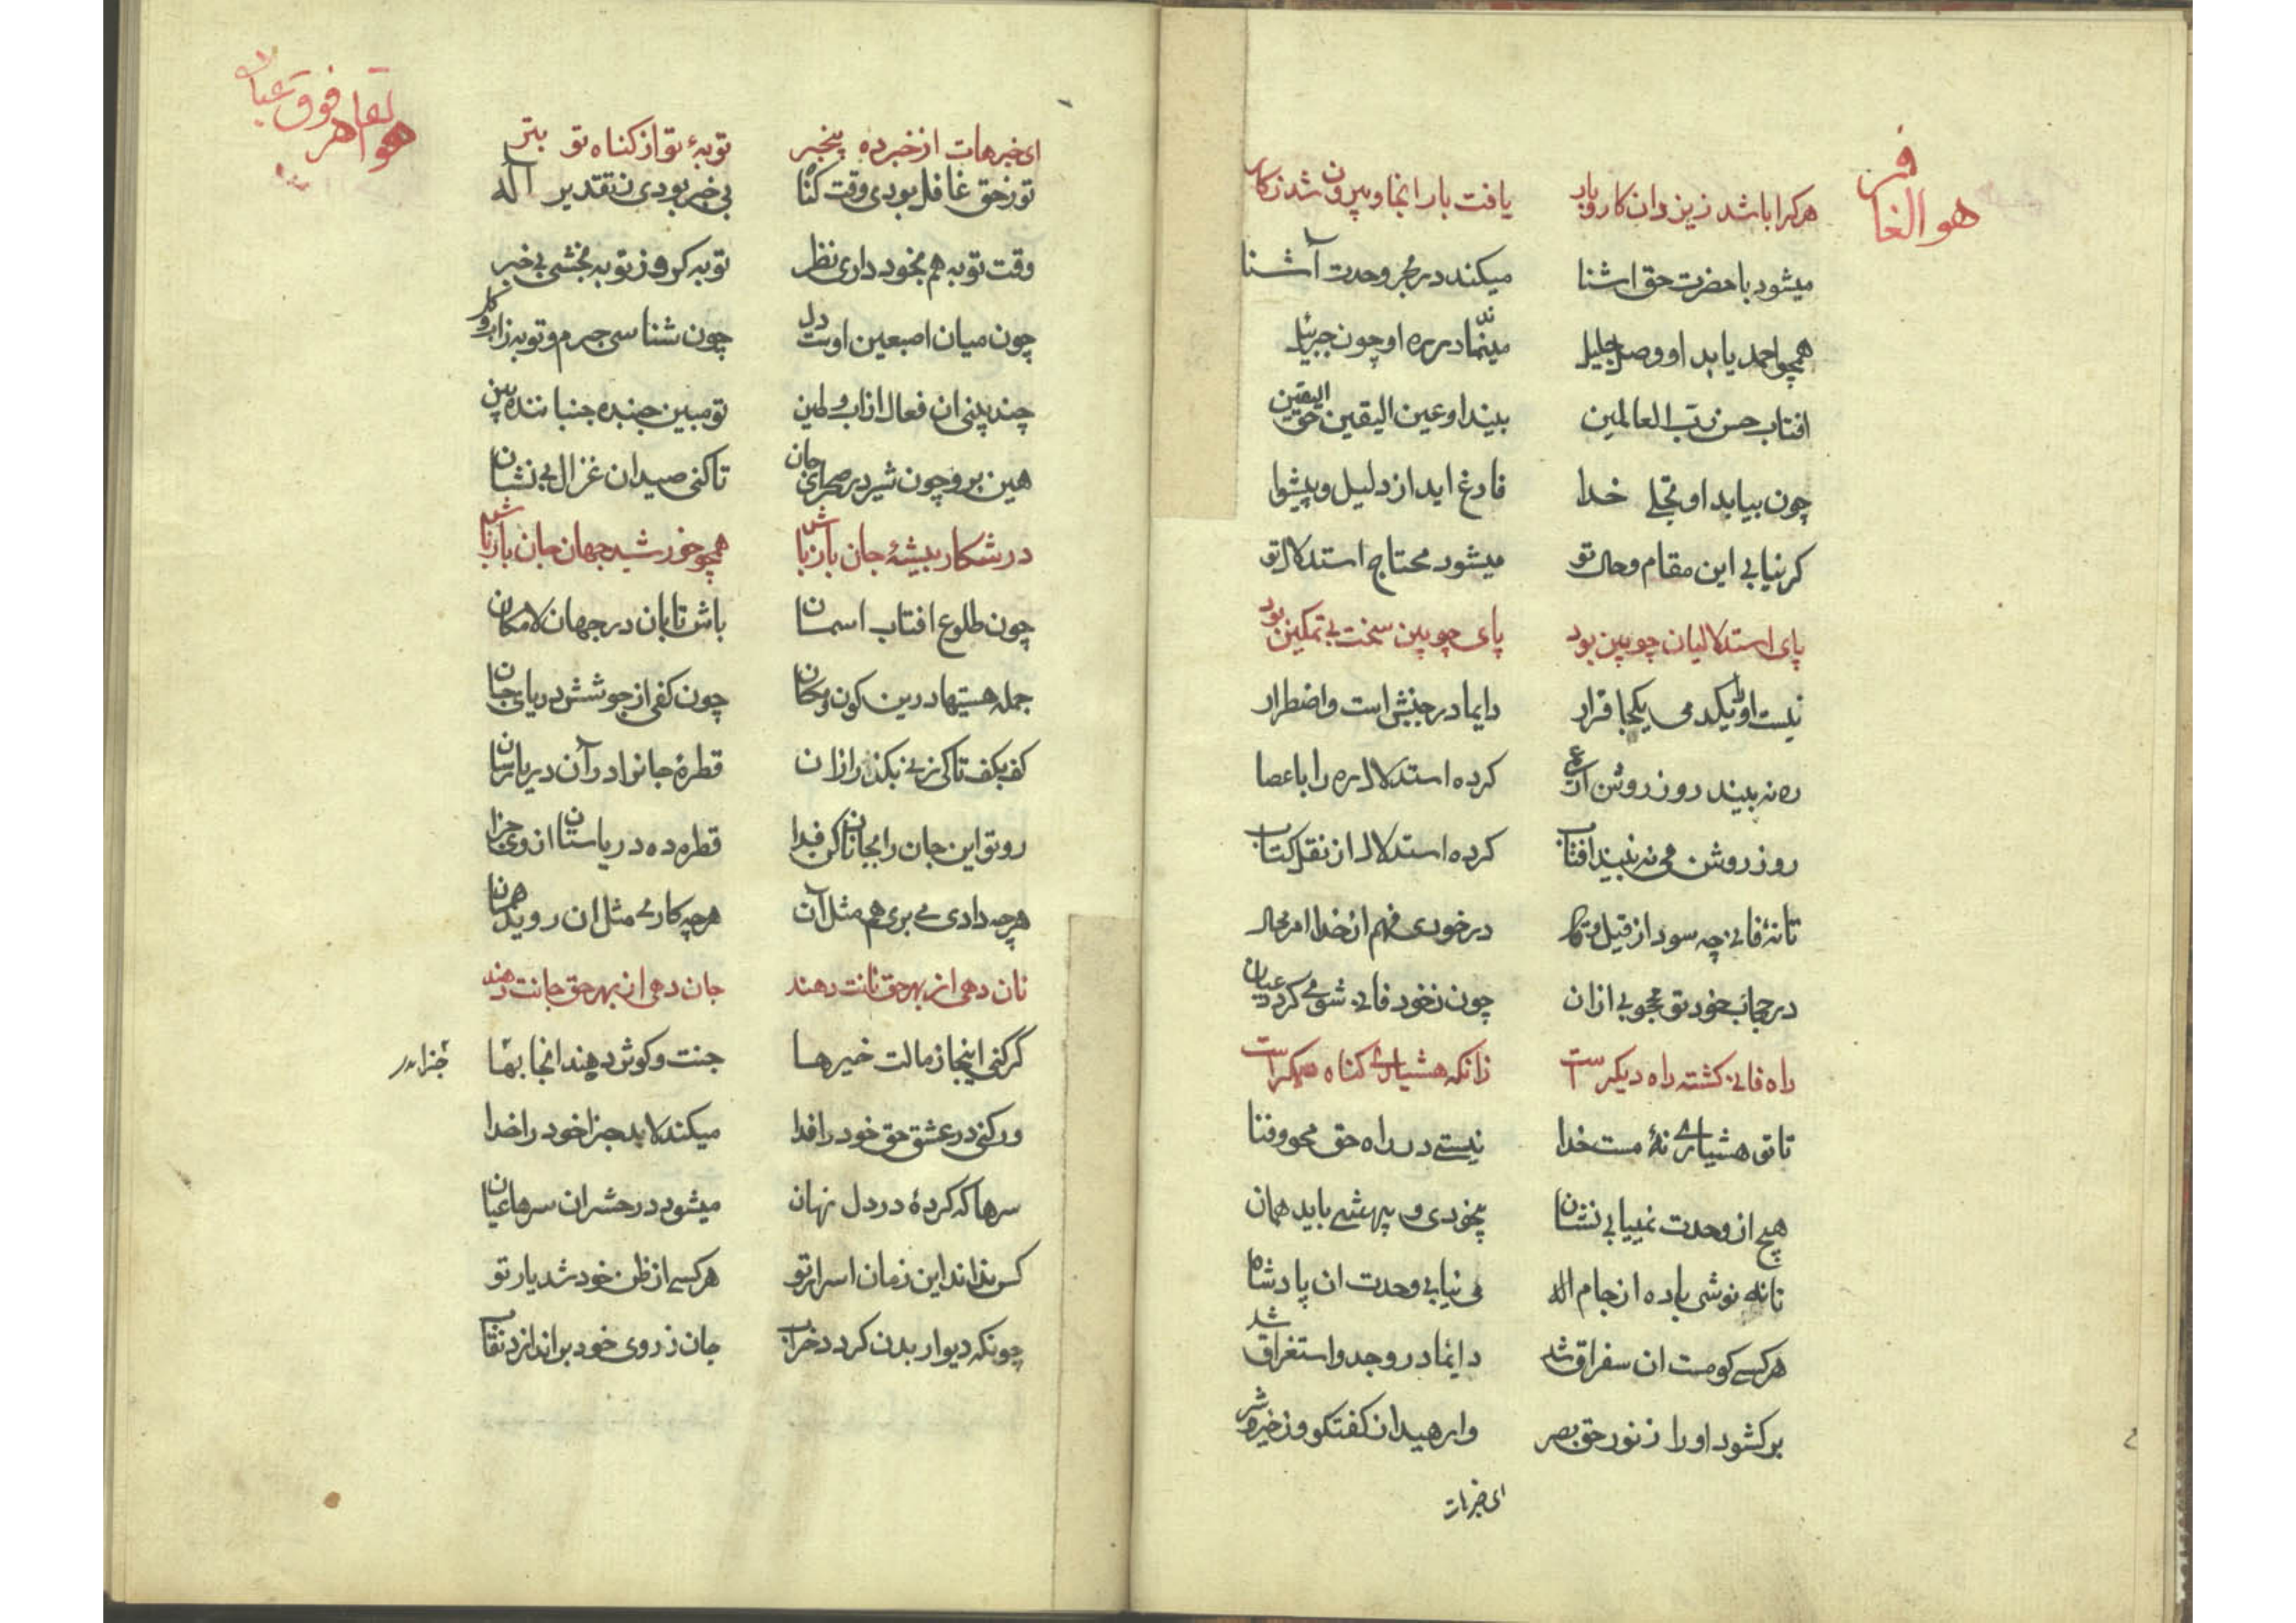 هو الغافر
هرکرا باشد زیزدان کار وبار یافت بار انجا و بیرون شد زکار
میشود با حضرت حق اشنا میکند در بحر وحدت آشنا
همچو احمد یابد او وصل جلیل مینماند در ره او چون جبرئیل
افتاب حسن رب العالمین بیند او عین الیقین حق الیقین
چون بیابد او تجلی خدا فارغ اید از دلیل و پیشوا
کر نیابی این مقام و حال تو میشود محتاج استدلال تو
پای استدلالیان چوبین بود پای چوبین سخت بی تمکین بود
نیست او را یکدمی یکجا قرار دایما در جنبش است و اضطرار
ره نه بیند روز روشن کرده استدلال ره را با عصا
روز روشن می نه بیند افتاب کرده استدلال از نقل کتاب
تا نۀ فانی چه سود از قیل و قال در خودی فهم از خدا امر محال
در حجاب خود تو محجوبی ازان چون زخود فانی شوی کردد عیان
راه فانی کشته راه دیکر است زانکه هشیاری کناه دیکر است
تا تو هشیاری نۀ مست خدا نیستی در راه حق محو و فنا
هیچ از وحدت نمییابی نشان بیخودی و بیهشی باید همان
تا نه نوشی باده از جام اله می نیابی وحدت ان پادشاه
هرکسی کو مست ان سغراق شد دایما در وجد و استغراق شد
برکشود اورا زنور حق بصر وارهید از کفتکو و ز خیر و شر
ای خبرهات
هو القاهر فوق عباده
ای خبرهات از خبرده بیخبر توبۀ تو از کناه تو بتر
تو زحق غافل بودی وقت کناه بی خبر بودی ز تقدیر آله
وقت توبه هم بخود داری نظر توبه کر و ز توبه بخشی بی خبر
چون میان اصبعین اوست دل چون شناسی جرم و توبه زاب و کل
چند بینی ان فعال از اب و طین تو مبین جنبده جنباننده بین
هین برو چون شیر در صحرای جان تا کنی صید ان غزال بی نشان
در شکار بیشۀ جان باز باش همچو خورشید جهان جان باز باش
چون طلوع افتاب اسمان باش تابان در جهان لامکان
جمله هستیها درین کون و مکان چون کفی از جوشش دریای جان
کف بکف تا کی زنی بکذر ازان قطرۀ جانرا در آن دریا رسان
رو تو این جان را بجانان کن فدا قطره ده دریا ستان از وی جزا
هرچه دادی می بری هم مثل آن هرچه کاری مثل ان روید همان
نان دهی از بهر حق نانت دهند جان دهی از بهر حق جانت دهند
گر کنی اینجا زمالت خیرها جنت و کوثر دهند انجا بها
ور کنی در عشق حق خود را فدا میکند لابد جزا خود را خدا
سرها که کردۀ در دل نهان میشود در حشر ان سرها عیان
کس نداند این زمان اسرار تو هرکسی از ظن خود شد یار تو
چونکه دیوار بدن کردد خراب جان ز روی خود براندازد نقاب